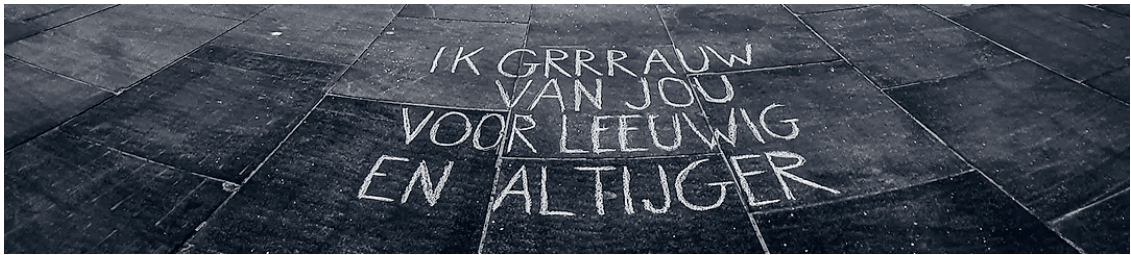 IK GRRRAUW
VAN JOU
VOOR LEEUWIG
EN ALTIJGER